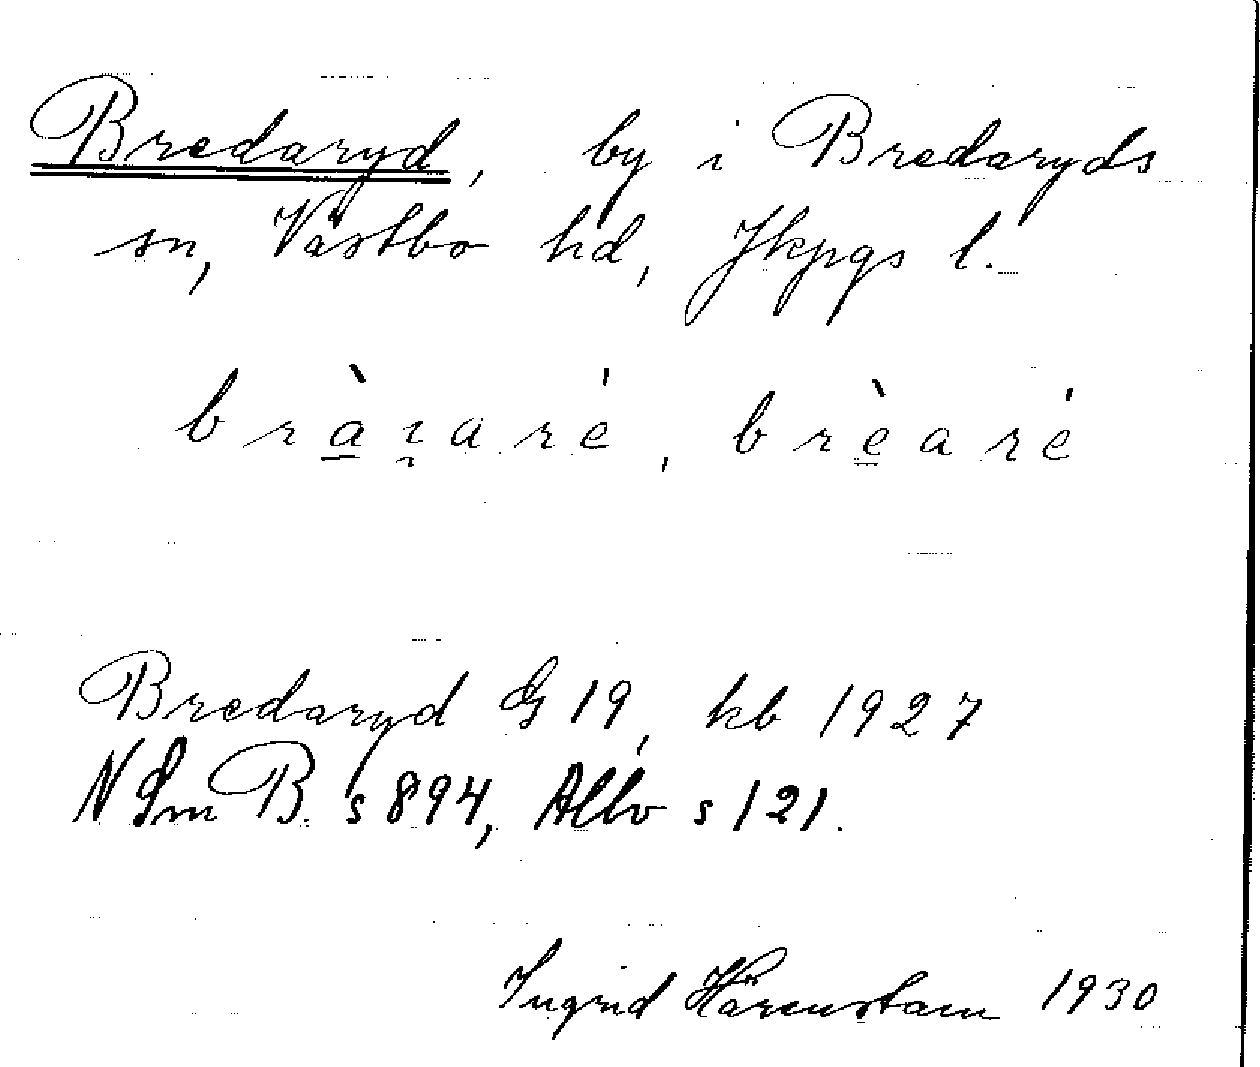 Bredaryd, by i Bredaryds
sn, Västbo hd, Jkpgs l.
bràɪ̯aré, brèaré
Bredaryd G 19, kb 1927
N Sm B. s 894, Allv s 121.
Ingrid Härenstam 1930